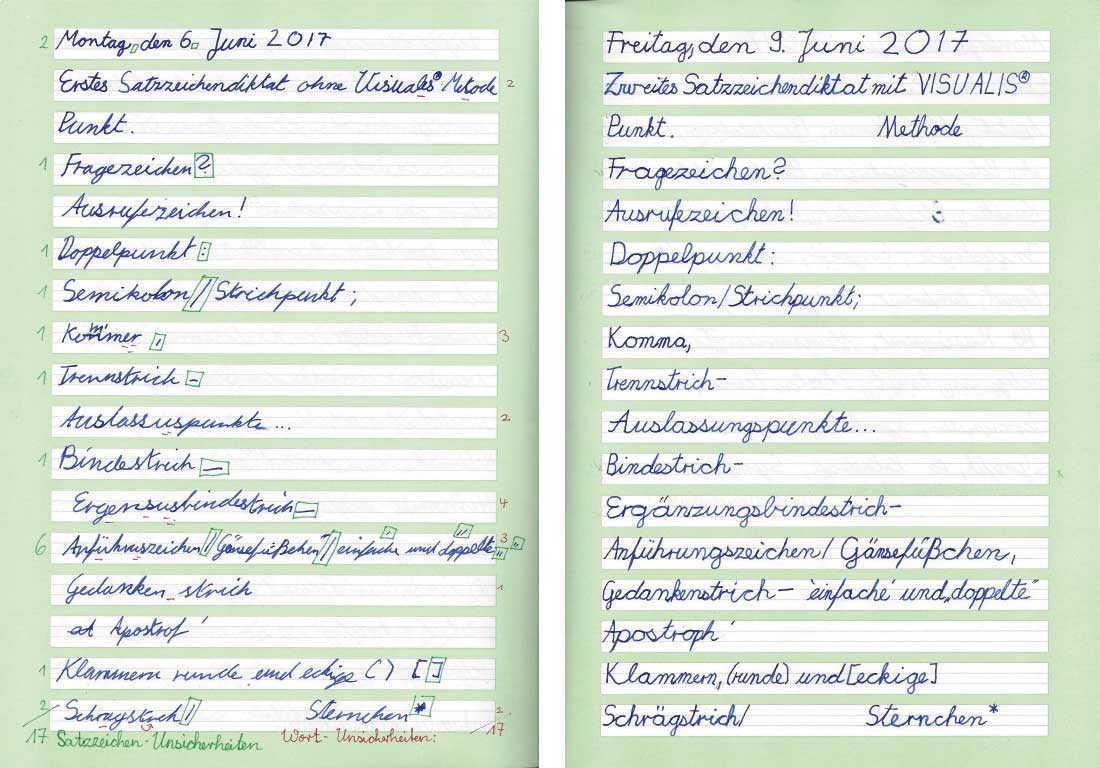 2 Montag, den 6. Juni 2017
Erstes Satzzeichendiktat ohne Visuales® Metode 2
Punkt.
1 Fragezeichen?
Ausrufezeichen!
1 Doppelpunkt :
1 Semikolon/Strichpunkt;
1 Kommer , 3
1 Trennstrich -
Auslassuspunkte ... 2
1 Bindestrich -
Ergensusbindestrich - 4
6 Anführuszeichen/Gänsefüßchen"/ 'einfache' und "doppelte" 3
Gedanken_strich 1
at Apostrof '
1 Klammern runde und eckige () []
2 Schraystrch / Sternchen* 2
17 Satzzeichen-Unsicherheiten Wort-Unsicherheiten: 17
Freitag, den 9. Juni 2017
Zweites Satzzeichendiktat mit VISUALIS®
Punkt. Methode
Fragezeichen?
Ausrufezeichen!
Doppelpunkt:
Semikolon/Strichpunkt;
Komma,
Trennstrich-
Auslassungspunkte...
Bindestrich-
Ergänzungsbindestrich-
Anführungszeichen/ Gänsefüßchen,
Gedankenstrich- 'einfache' und „doppelte"
Apostroph '
Klammern, (runde) und [eckige]
Schrägstrich/ Sternchen*